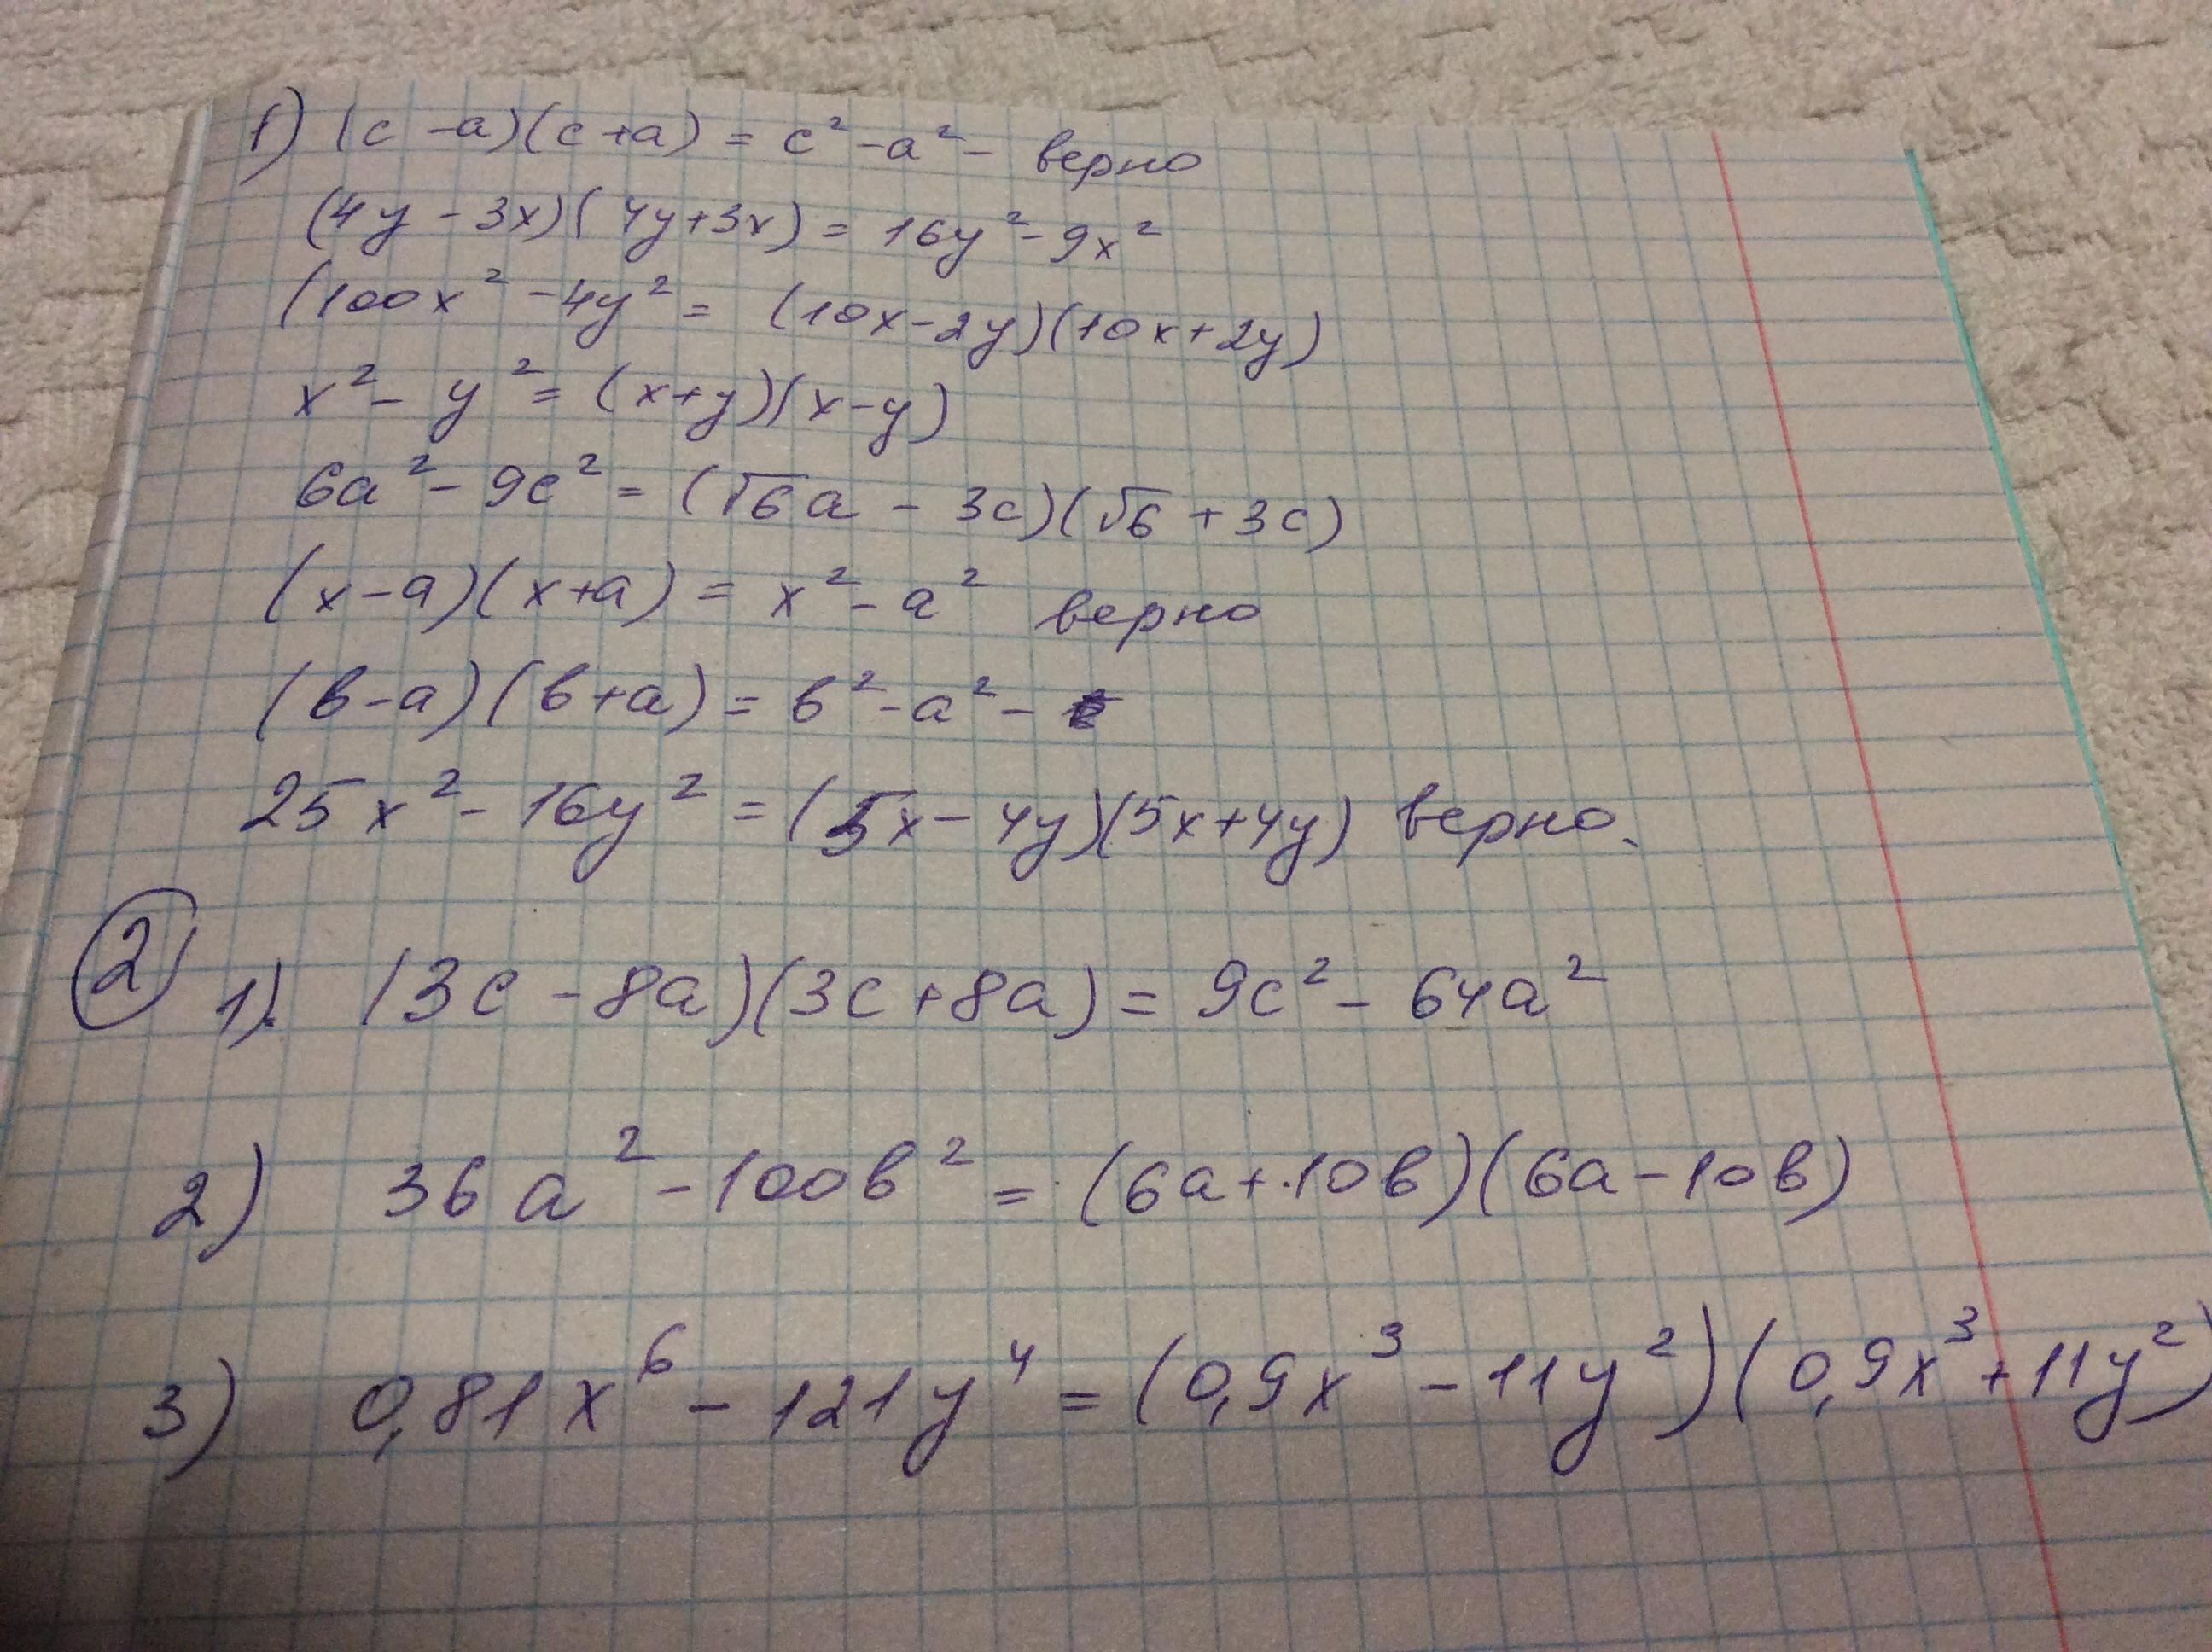 1) (c - a)(c + a) = c² - a² - верно
(4y - 3x)(4y + 3x) = 16y² - 9x²
(100x² - 4y² = (10x - 2y)(10x + 2y)
x² - y² = (x + y)(x - y)
6a² - 9c² = (√6a - 3c)(√6 + 3c)
(x - a)(x + a) = x² - a² верно
(в - a)(в + a) = в² - a² -
25x² - 16y² = (5x - 4y)(5x + 4y) верно.
② 1). (3c - 8a)(3c + 8a) = 9c² - 64a²
2) 36a² - 100в² = (6a + 10в)(6a - 10в)
3) 0,81x⁶ - 121y⁴ = (0,9x³ - 11y²)(0,9x³ + 11y²)